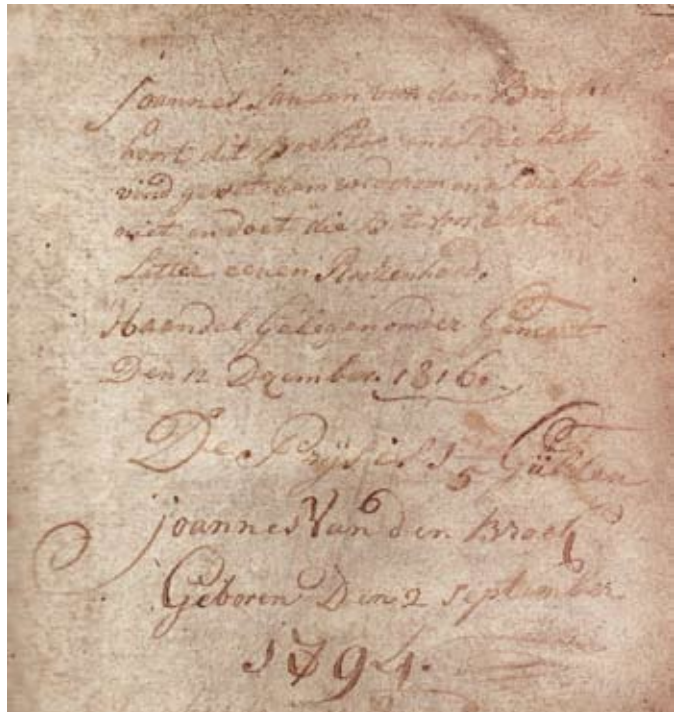 Joannes Jansen van den Broek
hort dit Boekje maal die het
vind geeft hem wederom en al die het
niet en doet die is voor elke
Letter eenen Roozenhoed.
Haandel Gelegen onder Gemert
Den 12 December. 1816.
De Prijs is 1 5 Gulden
6
joannes Van den Broek
Geboren Den 2 september
1794.